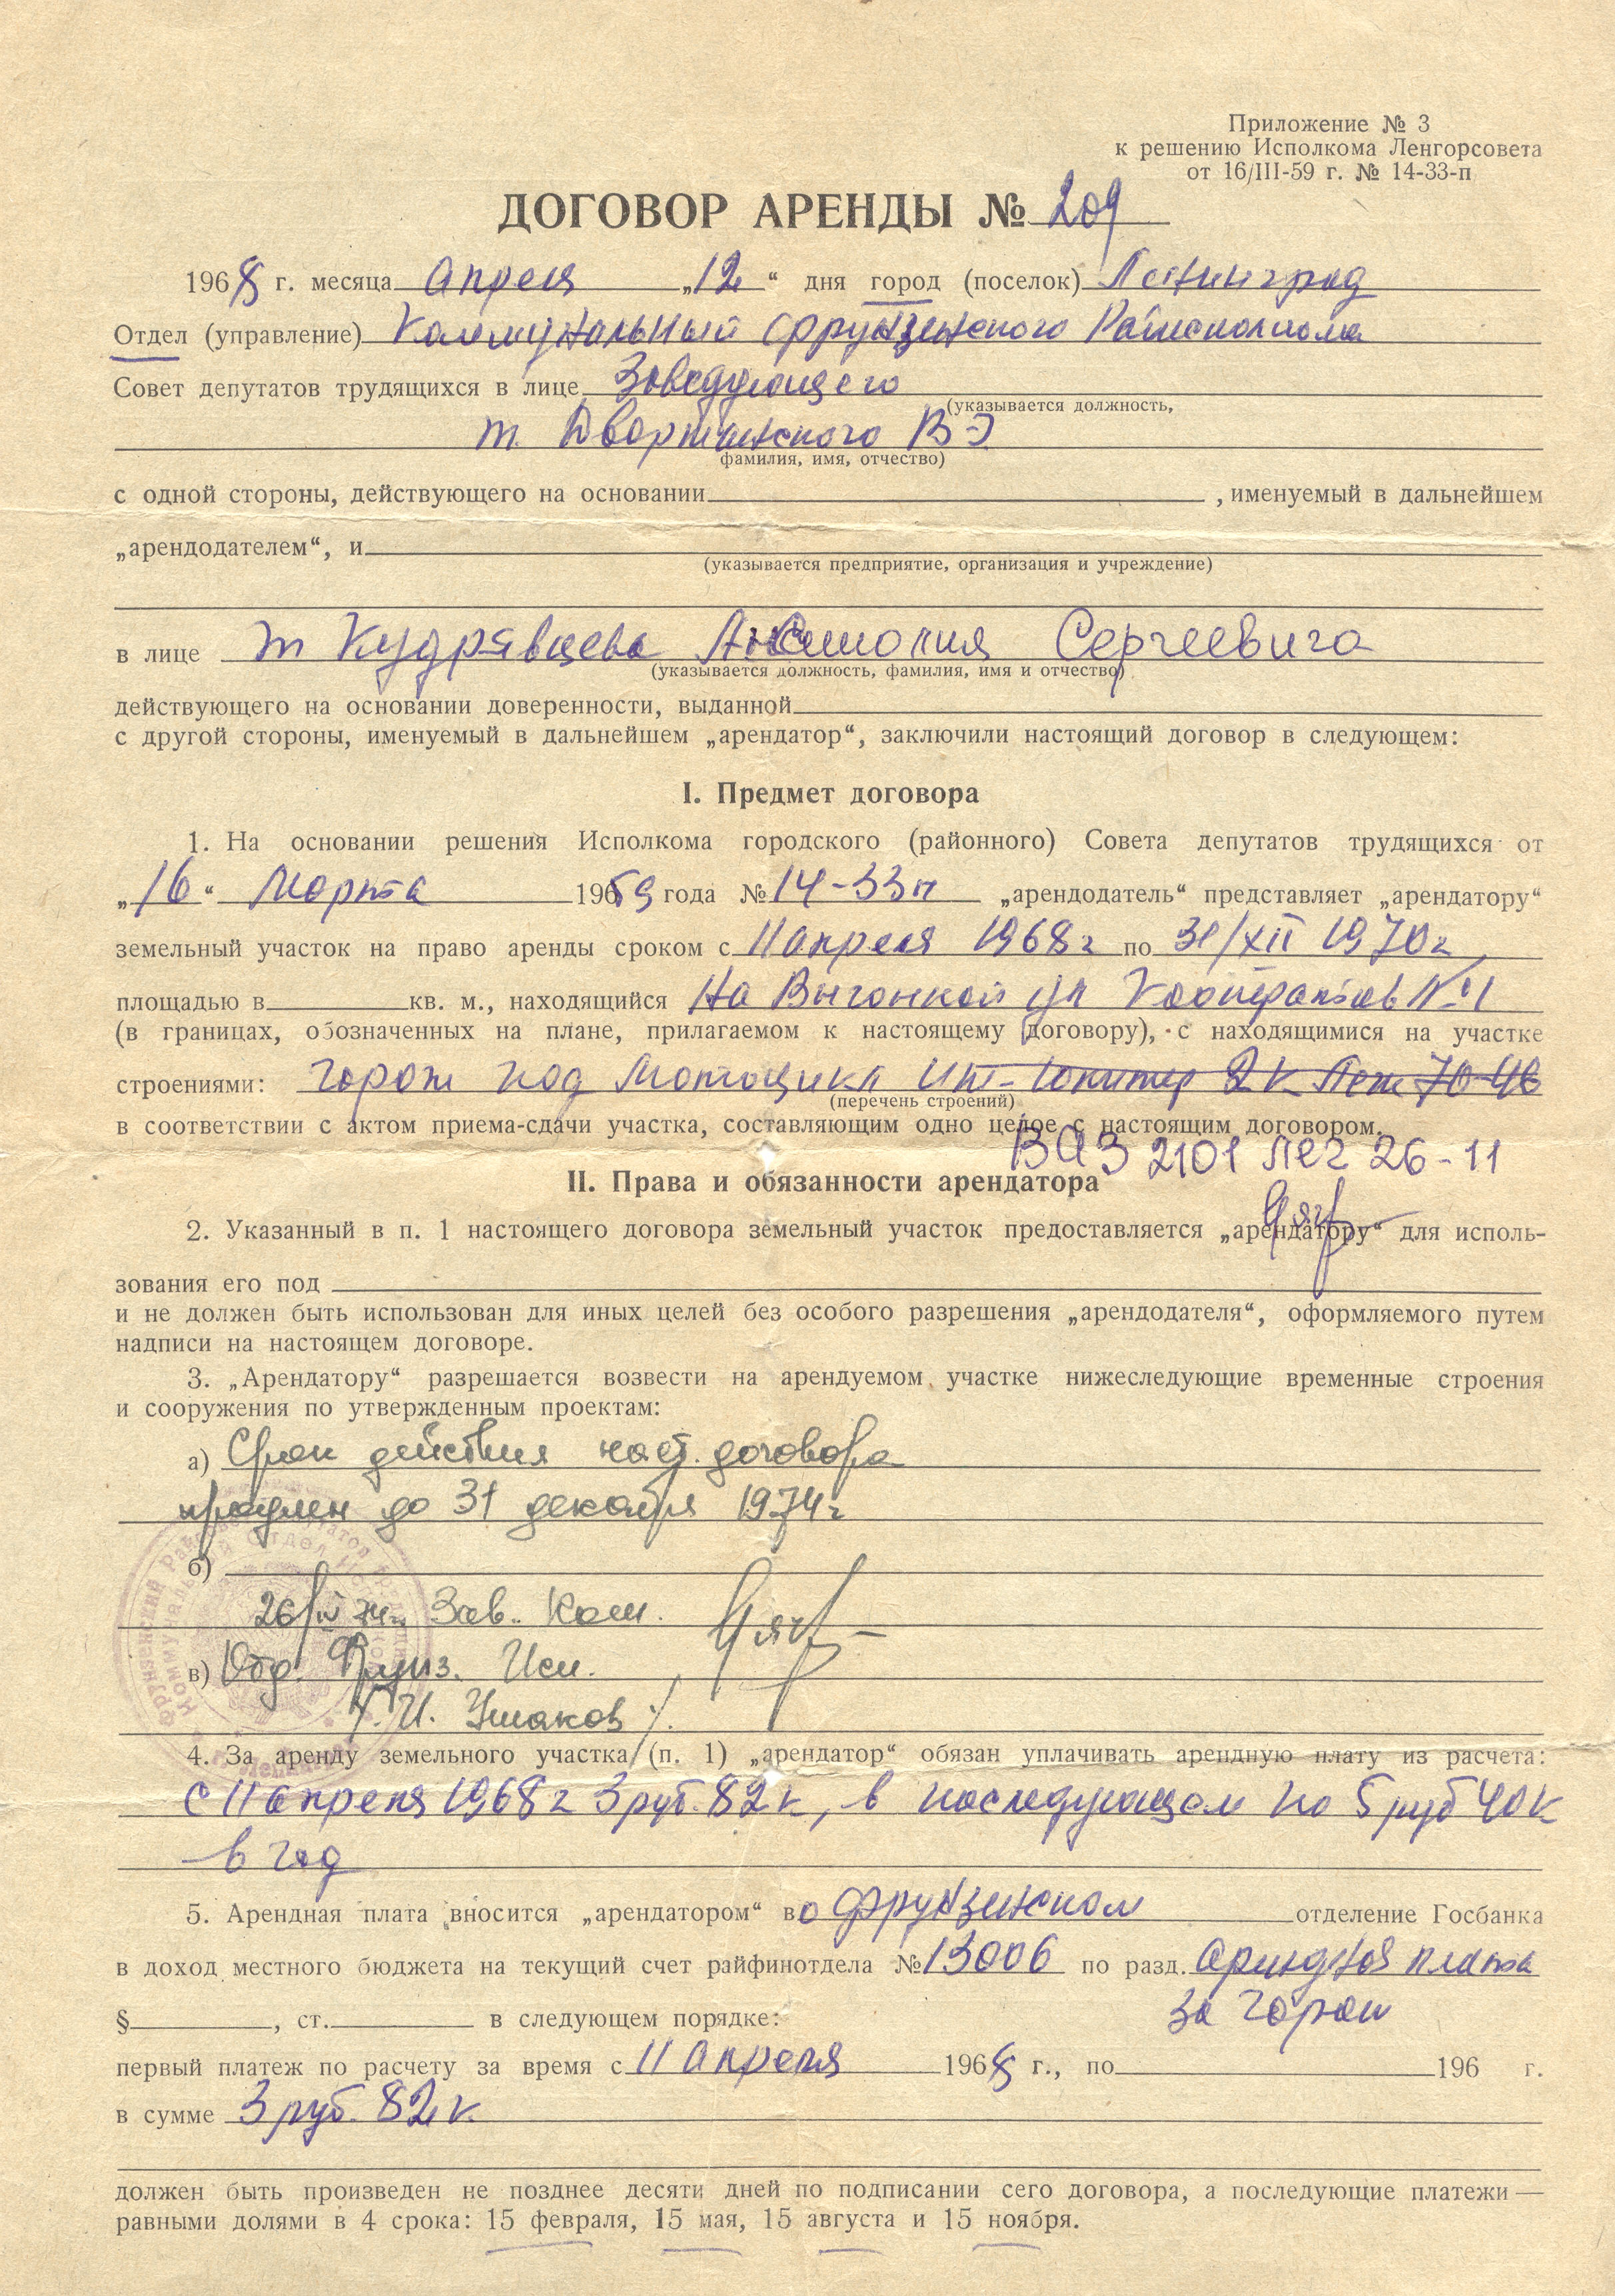 Приложение № 3
к решению Исполкома Ленгорсовета
от 16/III-59 г. № 14-33-п
ДОГОВОР АРЕНДЫ № 209
1968 г. месяца апреля „12“ дня город (поселок) Ленинград
Отдел (управление) Коммунальный Фрунзенского Райисполкома
Совет депутатов трудящихся в лице Заведующего
(указывается должность,
т. В-Э
фамилия, имя, отчество)
с одной стороны, действующего на основании , именуемый в дальнейшем
„арендодателем“, и
(указывается предприятие, организация и учреждение)
в лице т Кудрявцева Анатолия Сергеевича
(указывается должность, фамилия, имя и отчество)
действующего на основании доверенности, выданной
с другой стороны, именуемый в дальнейшем „арендатор“, заключили настоящий договор в следующем:
I. Предмет договора
1. На основании решения Исполкома городского (районного) Совета депутатов трудящихся от
„16“ Марта 1959 года № 14-33п „арендодатель“ представляет „арендатору“
земельный участок на право аренды сроком с 11 апреля 1968 г по 31/XII 1970 г,
площадью в кв. м., находящийся На ул №1
(в границах, обозначенных на плане, прилагаемом к настоящему договору), с находящимися на участке
строениями: гараж под Мотоцикл Иж-Юпитер 2К Леж 70-46
(перечень строений)
в соответствии с актом приема-сдачи участка, составляющим одно целое с настоящим договором.
ВАЗ 2101 26-11
II. Права и обязанности арендатора
2. Указанный в п. 1 настоящего договора земельный участок предоставляется „арендатору“ для исполь-
зования его под
и не должен быть использован для иных целей без особого разрешения „арендодателя“, оформляемого путем
надписи на настоящем договоре.
3. „Арендатору“ разрешается возвести на арендуемом участке нижеследующие временные строения
и сооружения по утвержденным проектам:
а) Срок действия наст. договора
продлен до 31 декабря 1974 г
б)
Зав. Ком.
в) Отд. Фрунз. Исп.
/. И. Ушаков /.
4. За аренду земельного участка (п. 1) „арендатор“ обязан уплачивать арендную плату из расчета:
с 11 апреля 1968 г 3 руб. 82 к, в последующем по 5 руб 40 к
в год
5. Арендная плата вносится „арендатором“ во Фрунзенском отделение Госбанка
в доход местного бюджета на текущий счет райфинотдела № 13006 по разд. арендная плата
за гараж
§ , ст. в следующем порядке:
первый платеж по расчету за время с 11 апреля 1968 г., по 196 г.
в сумме 3 руб. 82 к.
должен быть произведен не позднее десяти дней по подписании сего договора, а последующие платежи —
равными долями в 4 срока: 15 февраля, 15 мая, 15 августа и 15 ноября.